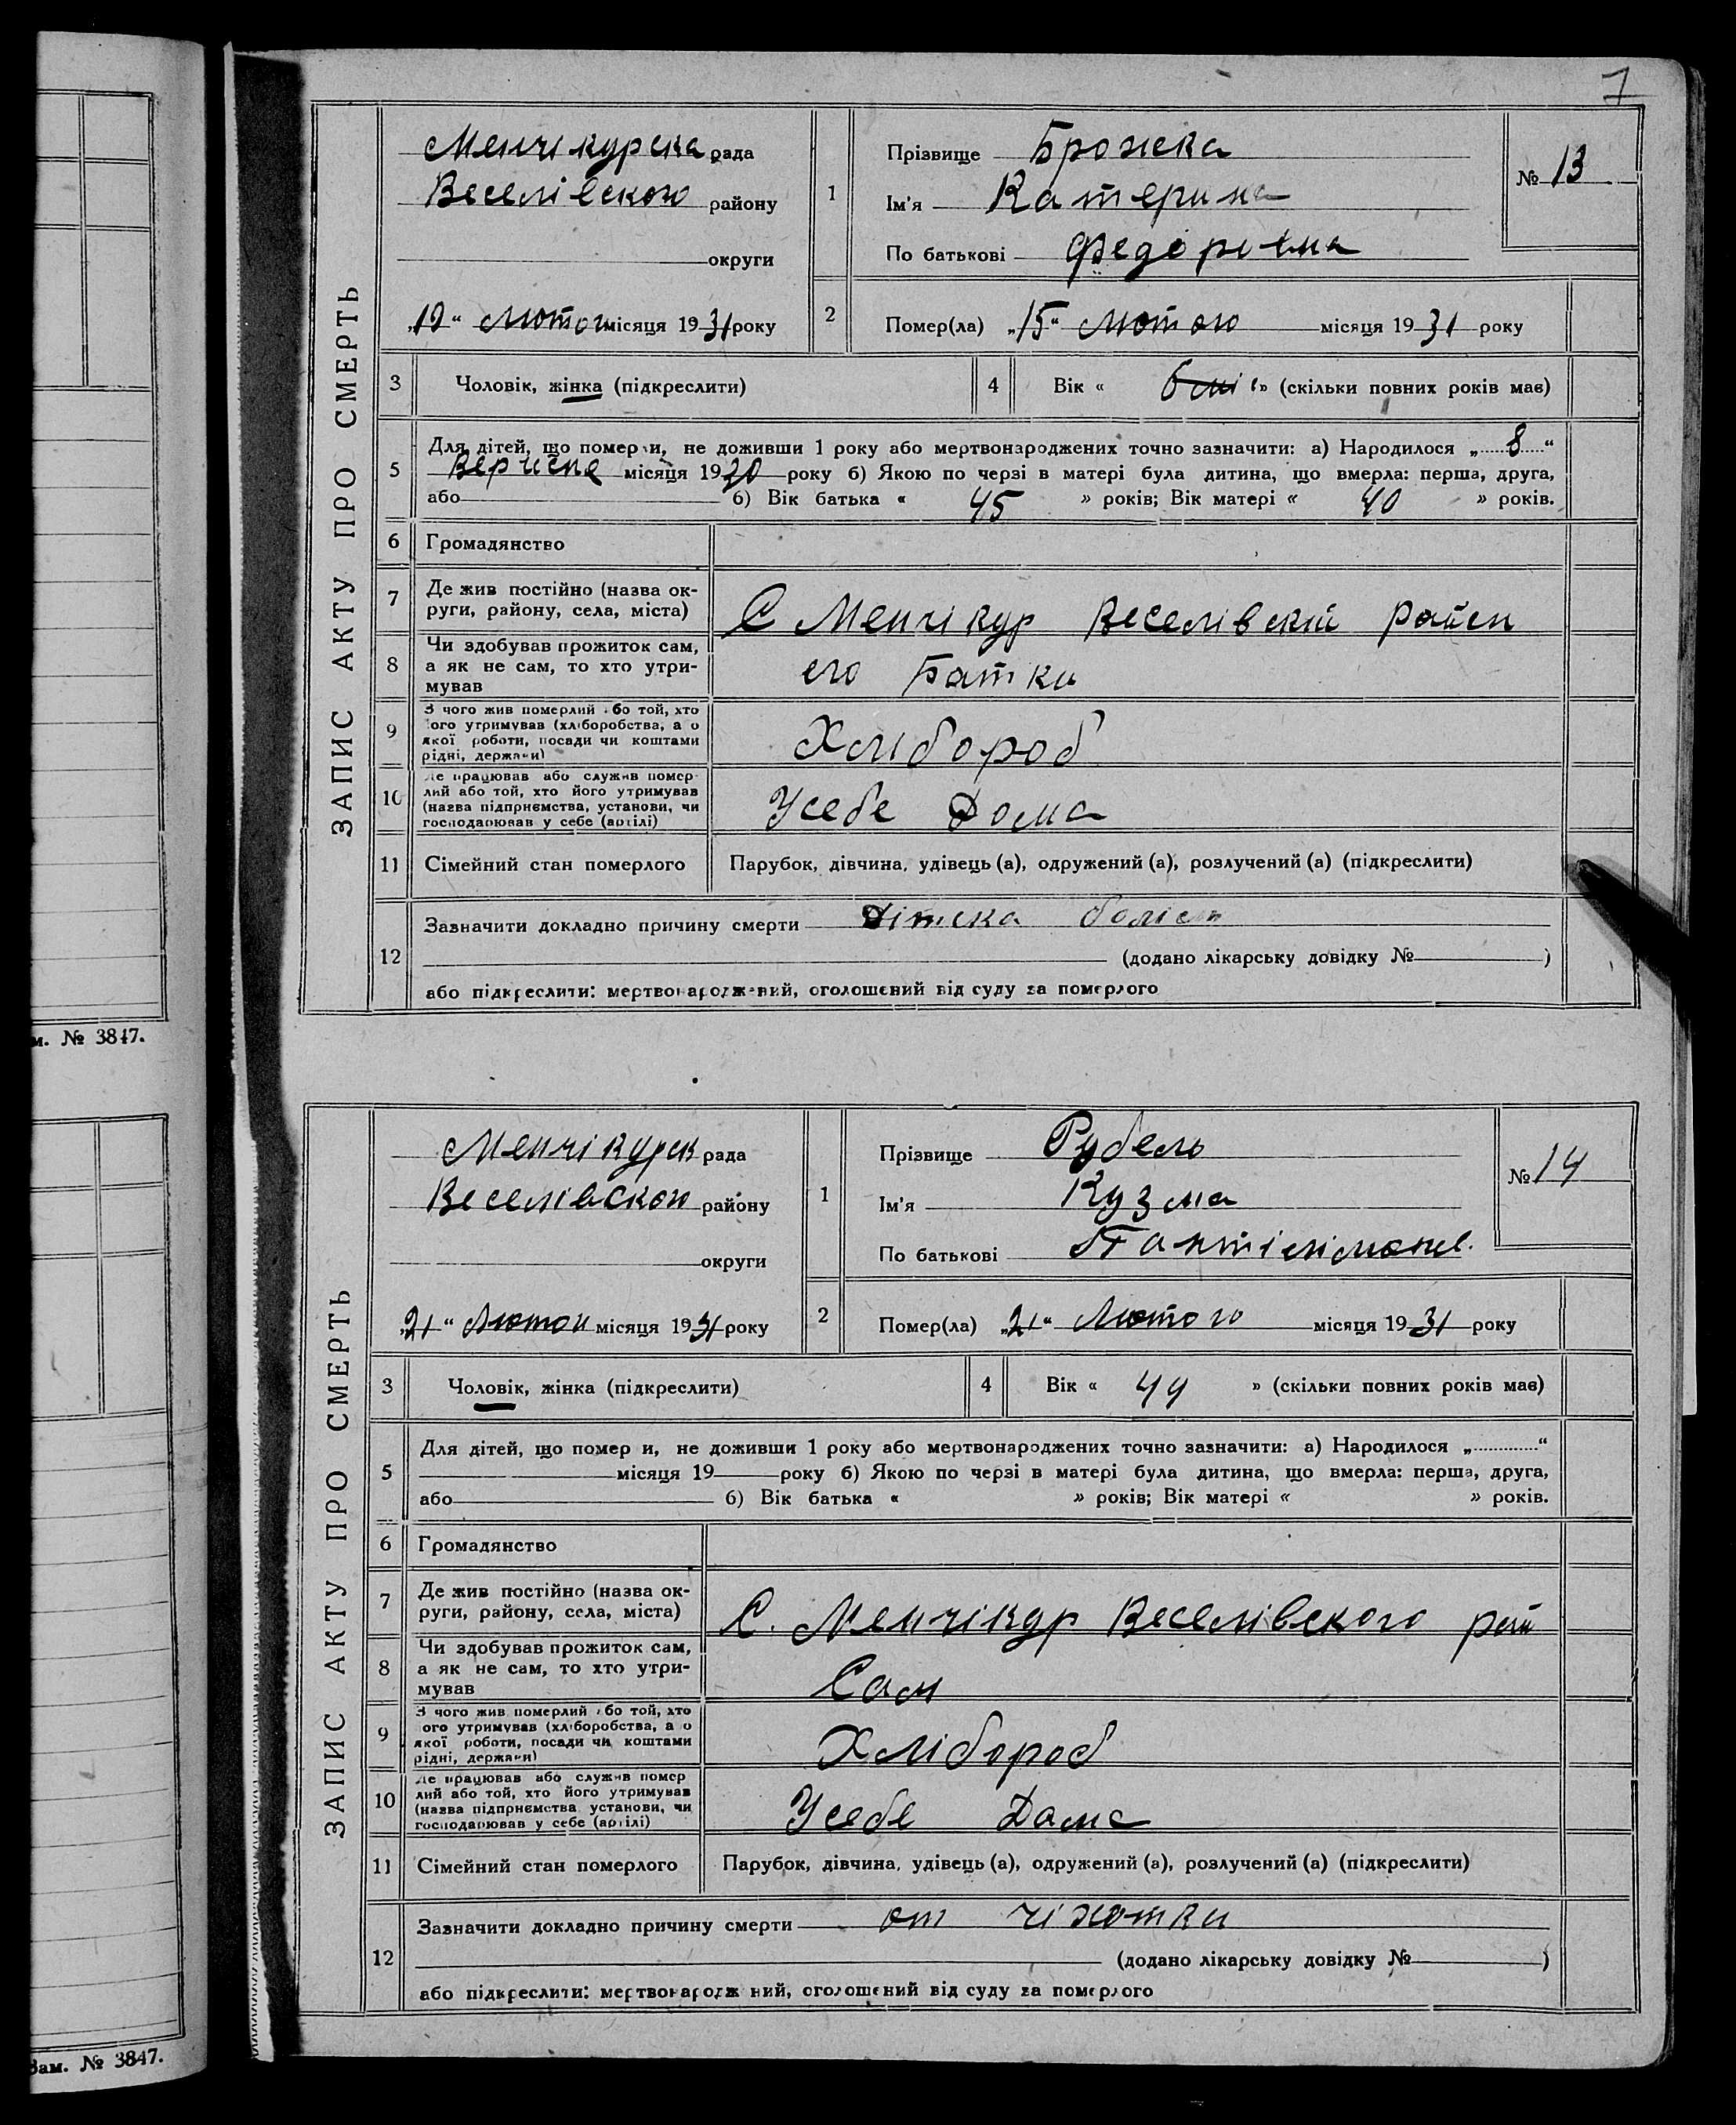 7
ЗАПИС АКТУ ПРО СМЕРТЬ
Менчікурска рада
Веселівского району
округи
„12“ Лютого місяця 1931 року
1
Прізвище Брожека
Ім'я Катерина
По батькові Федоровна
№ 13
2
Помер(ла) „15“ Лютого місяця 1931 року
3 Чоловік, жінка (підкреслити)
4 Вік « 6 мі » (скільки повних років має)
5 Для дітей, що померли, не доживши 1 року або мертвонароджених точно зазначити: а) Народилося „8“
місяця 1930 року б) Якою по черзі в матері була дитина, що вмерла: перша, друга,
або б) Вік батька « 45 » років; Вік матері « 40 » років.
6 Громадянство
7 Де жив постійно (назва округи, району, села, міста)
С Менчікур Веселівский Район
8 Чи здобував прожиток сам, а як не сам, то хто утримував
его Батки
9 З чого жив померлий або той, хто його утримував (хліборобства, або якої роботи, посади чи коштами рідні, держави)
Хлібороб
10 Де працював або служив померлий або той, хто його утримував (назва підприємства, установи, чи господарював у себе (артілі)
Усебе Дома
11 Сімейний стан померлого
Парубок, дівчина, удівець (а), одружений (а), розлучений (а) (підкреслити)
12 Зазначити докладно причину смерти Дітска боліст
(додано лікарську довідку № )
або підкреслити: мертвонароджений, оголошений від суду за померлого
м. № 3847.
ЗАПИС АКТУ ПРО СМЕРТЬ
Менчікурск рада
Веселівского району
округи
„21“ Лютого місяця 1931 року
1
Прізвище Рубель
Ім'я Кузма
По батькові Пантілімонов.
№ 14
2
Помер(ла) „21“ Лютого місяця 1931 року
3 Чоловік, жінка (підкреслити)
4 Вік « 49 » (скільки повних років має)
5 Для дітей, що померли, не доживши 1 року або мертвонароджених точно зазначити: а) Народилося „ “
місяця 19 року б) Якою по черзі в матері була дитина, що вмерла: перша, друга,
або б) Вік батька « » років; Вік матері « » років.
6 Громадянство
7 Де жив постійно (назва округи, району, села, міста)
С. Менчікур Веселівского рай
8 Чи здобував прожиток сам, а як не сам, то хто утримував
Сам
9 З чого жив померлий або той, хто його утримував (хліборобства, або якої роботи, посади чи коштами рідні, держави)
Хлібороб
10 Де працював або служив померлий або той, хто його утримував (назва підприємства, установи, чи господарював у себе (артілі)
Усебе Дома
11 Сімейний стан померлого
Парубок, дівчина, удівець (а), одружений (а), розлучений (а) (підкреслити)
12 Зазначити докладно причину смерти от чіхотки
(додано лікарську довідку № )
або підкреслити: мертвонароджений, оголошений від суду за померлого
Зам. № 3847.